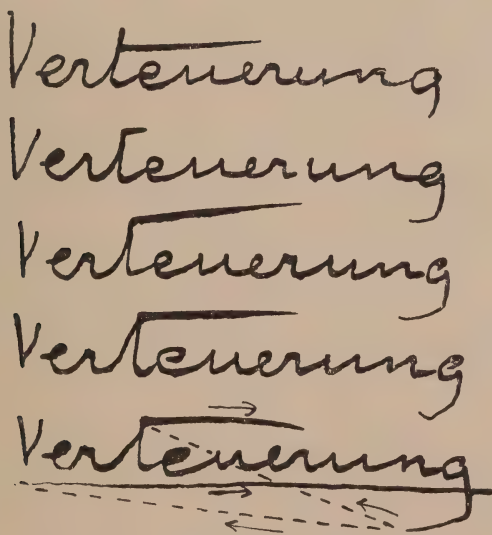 Verteuerung
Verteuerung
Verteuerung
Verteuerung
Verteuerung